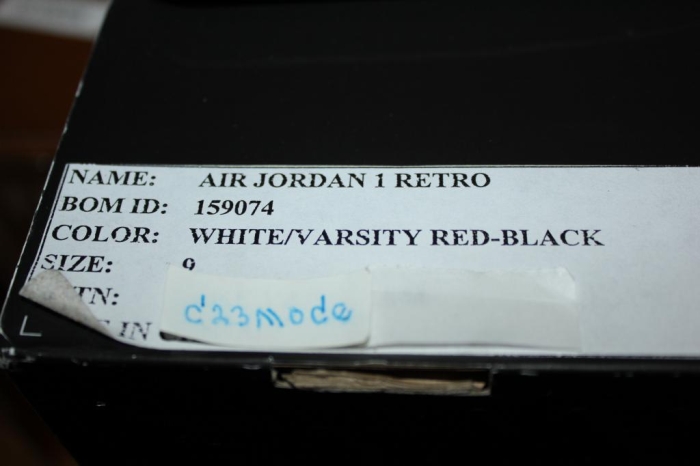 NAME: AIR JORDAN 1 RETRO
BOM ID: 159074
COLOR: WHITE/VARSITY RED-BLACK
SIZE: 9
TN:
IN
d23mode